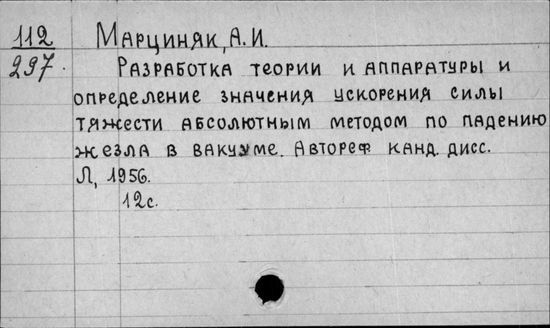 112 Марциняк, А.И.
297. Разработка теории и аппаратуры и
определение значения ускорения силы
тяжести абсолютным методом по падению
жезла в вакууме. Автореф канд. дисс.
Л, 1956.
12с.